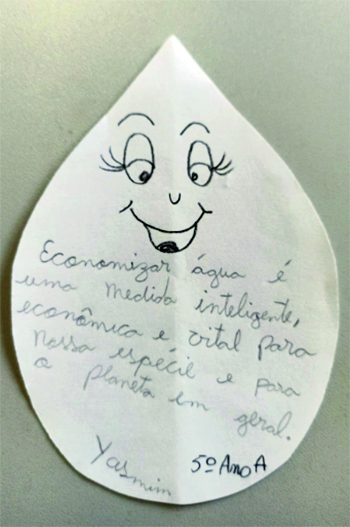 Economizar água é
uma medida inteligente,
econômica e vital para
nossa espécie e para
o planeta em geral.
Yasmim 5º Ano A